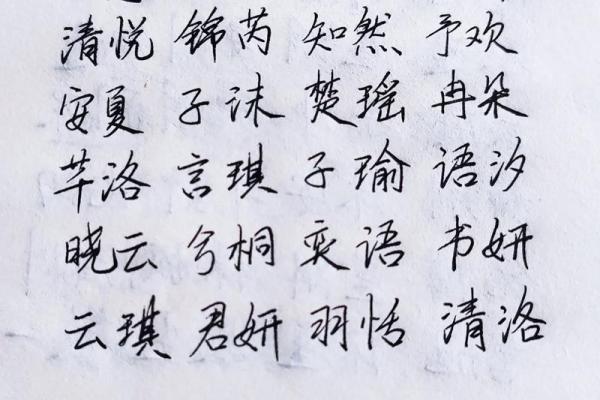 清悦 锦芮 知然 予欢
安夏 子沫 楚瑶 冉朵
芊洛 言琪 子瑜 语汐
晓云 兮桐 奕语 书妍
云琪 君妍 羽恬 清洛